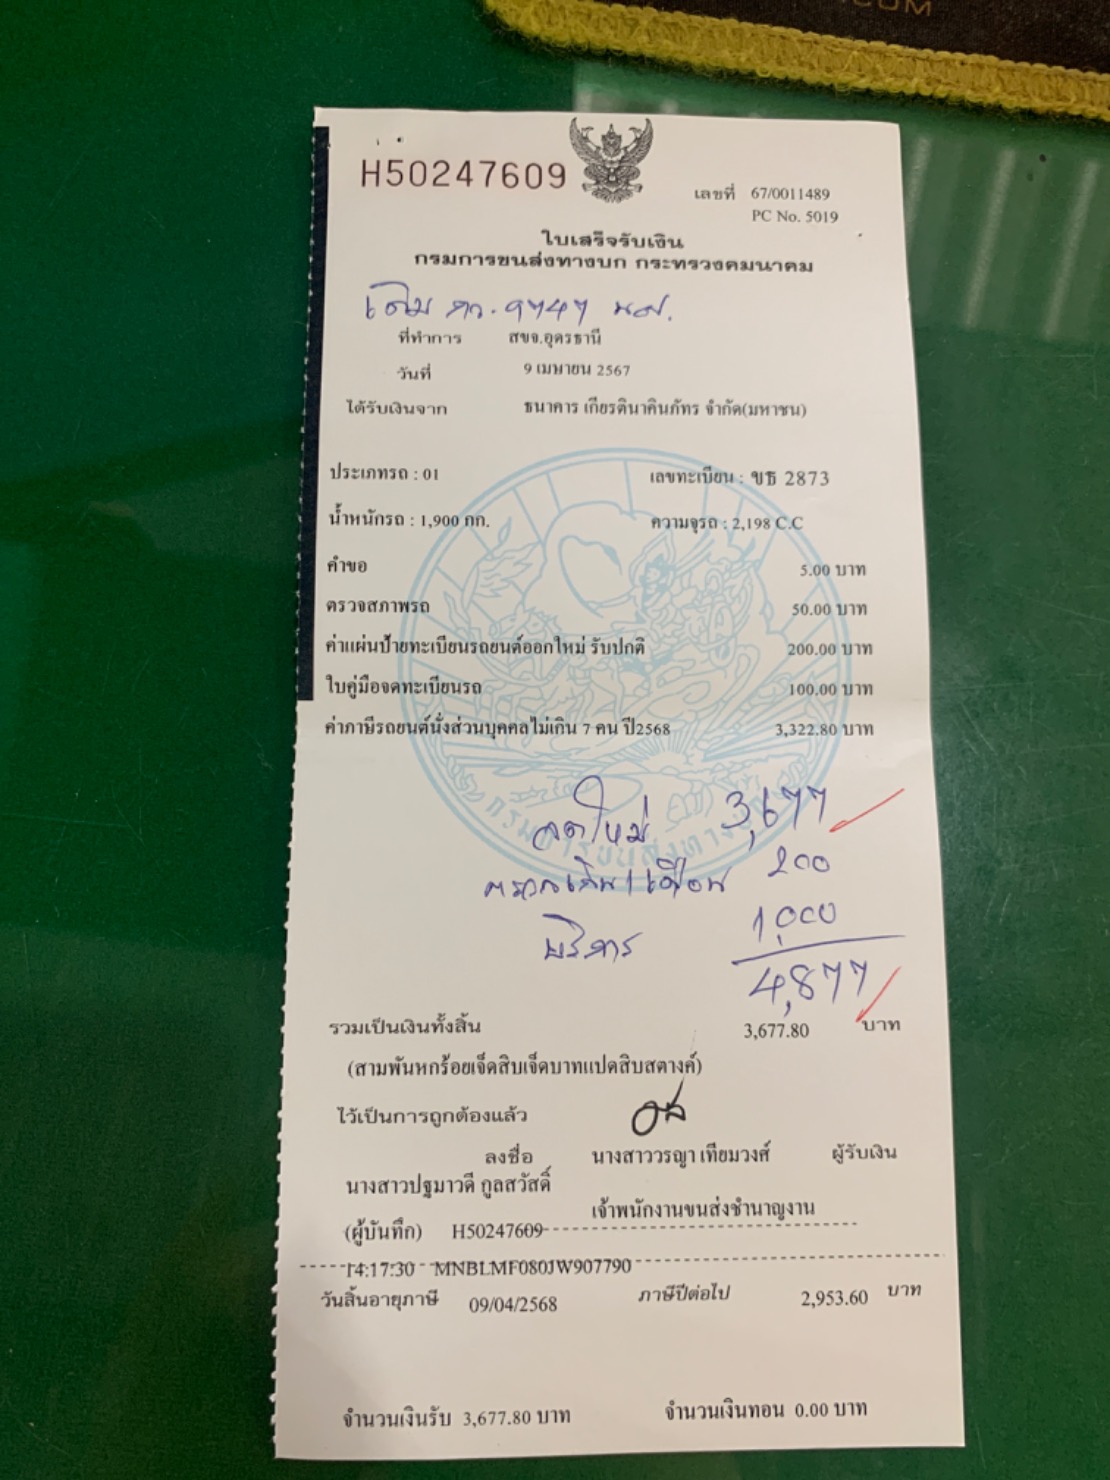 .COM
H50247609
เลขที่ 67/0011489
PC No. 5019
ใบเสร็จรับเงิน
กรมการขนส่งทางบก กระทรวงคมนาคม
เดิม กว.9747 นค.
ที่ทำการ สขจ.อุดรธานี
วันที่ 9 เมษายน 2567
ได้รับเงินจาก ธนาคาร เกียรตินาคินภัทร จำกัด(มหาชน)
ประเภทรถ : 01 เลขทะเบียน : ขธ 2873
น้ำหนักรถ : 1,900 กก. ความจุรถ : 2,198 C.C
คำขอ 5.00 บาท
ตรวจสภาพรถ 50.00 บาท
ค่าแผ่นป้ายทะเบียนรถยนต์ออกใหม่ รับปกติ 200.00 บาท
ใบคู่มือจดทะเบียนรถ 100.00 บาท
ค่าภาษีรถยนต์นั่งส่วนบุคคลไม่เกิน 7 คน ปี2568 3,322.80 บาท
จดใหม่ 3,677
ตรวจเกิน 1 เดือน 200
บริการ 1,000
4,877
รวมเป็นเงินทั้งสิ้น 3,677.80 บาท
(สามพันหกร้อยเจ็ดสิบเจ็ดบาทแปดสิบสตางค์)
ไว้เป็นการถูกต้องแล้ว
ลงชื่อ นางสาววรญา เทียมวงศ์ ผู้รับเงิน
นางสาวปฐมาวดี กูลสวัสดิ์
เจ้าพนักงานขนส่งชำนาญงาน
(ผู้บันทึก) H50247609
14:17:30 MNBLMF080JW907790
วันสิ้นอายุภาษี 09/04/2568 ภาษีปีต่อไป 2,953.60 บาท
จำนวนเงินรับ 3,677.80 บาท จำนวนเงินทอน 0.00 บาท